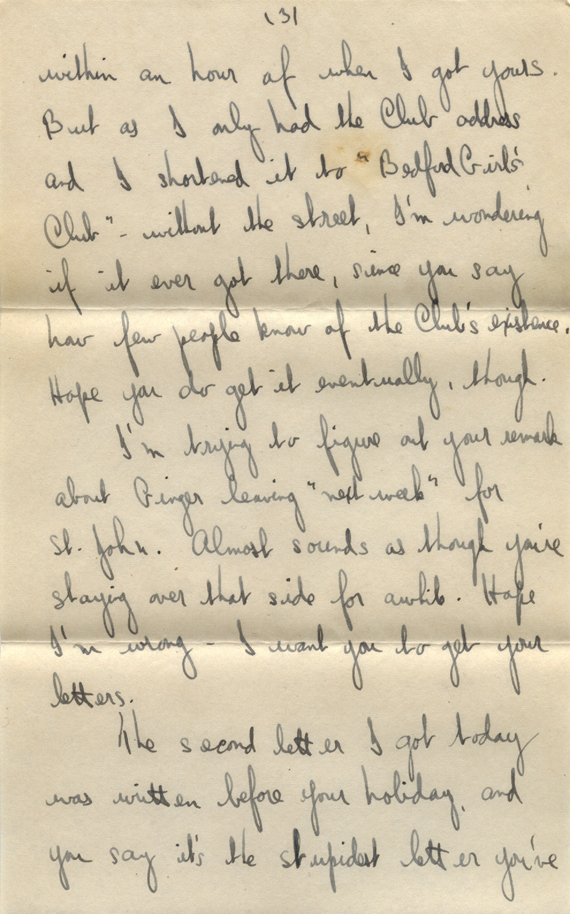 (3)
within an hour of when I got yours.
But as I only had the Club address
and I shortened it to "Bedford Girl's
Club" - without the street, I'm wondering
if it ever got there, since you say
how few people know of the Club's existence.
Hope you do get it eventually, though.
I'm trying to figure out your remark
about Ginger leaving "next week" for
St. John. Almost sounds as though you're
staying over that side for awhile. Hope
I'm wrong - I want you to get your
letters.
The second letter I got today
was written before your holiday, and
you say it's the stupidest letter you've